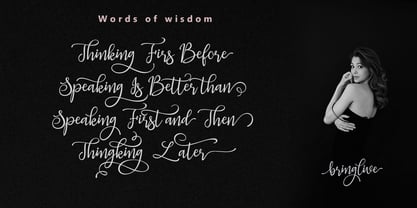 Words of wisdom
Thinking Firs Before
Speaking Is Better than
Speaking First and Then
Thingking Later
bringluse